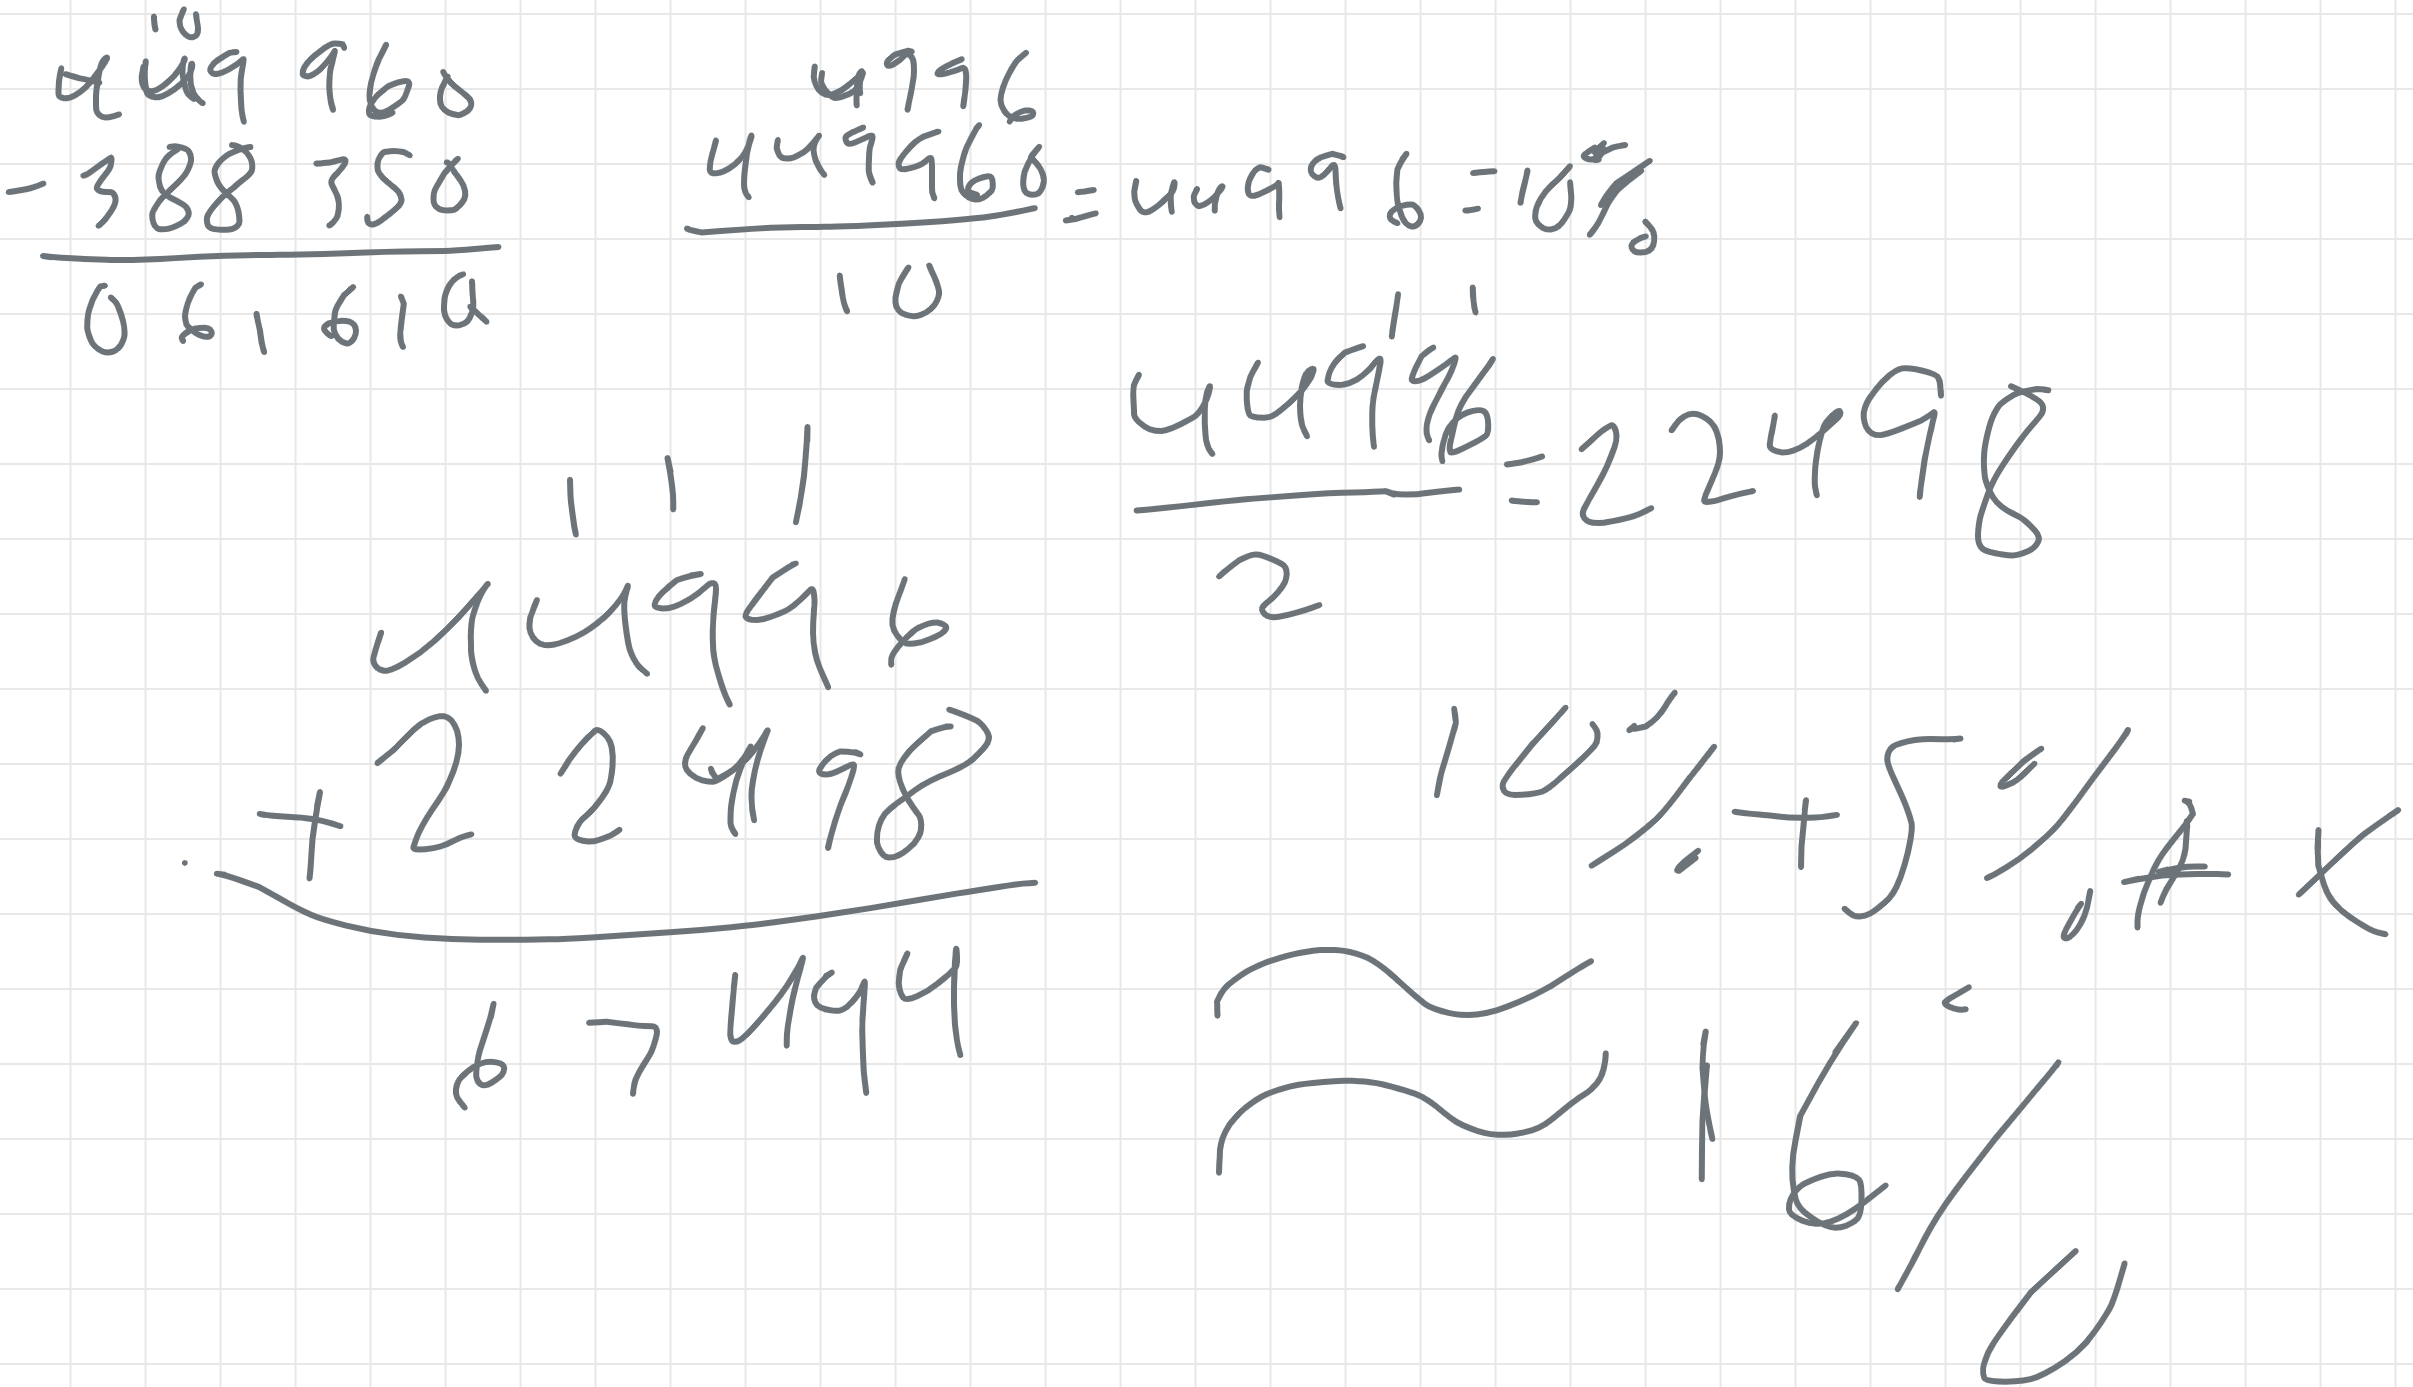 449 960
- 388 350
061,610
4996
449960 / 10 = 44996 = 10%
44996 / 2 = 22498
1 1 1
44996
+ 22498
67494
10% + 5% + x
≈ 16%